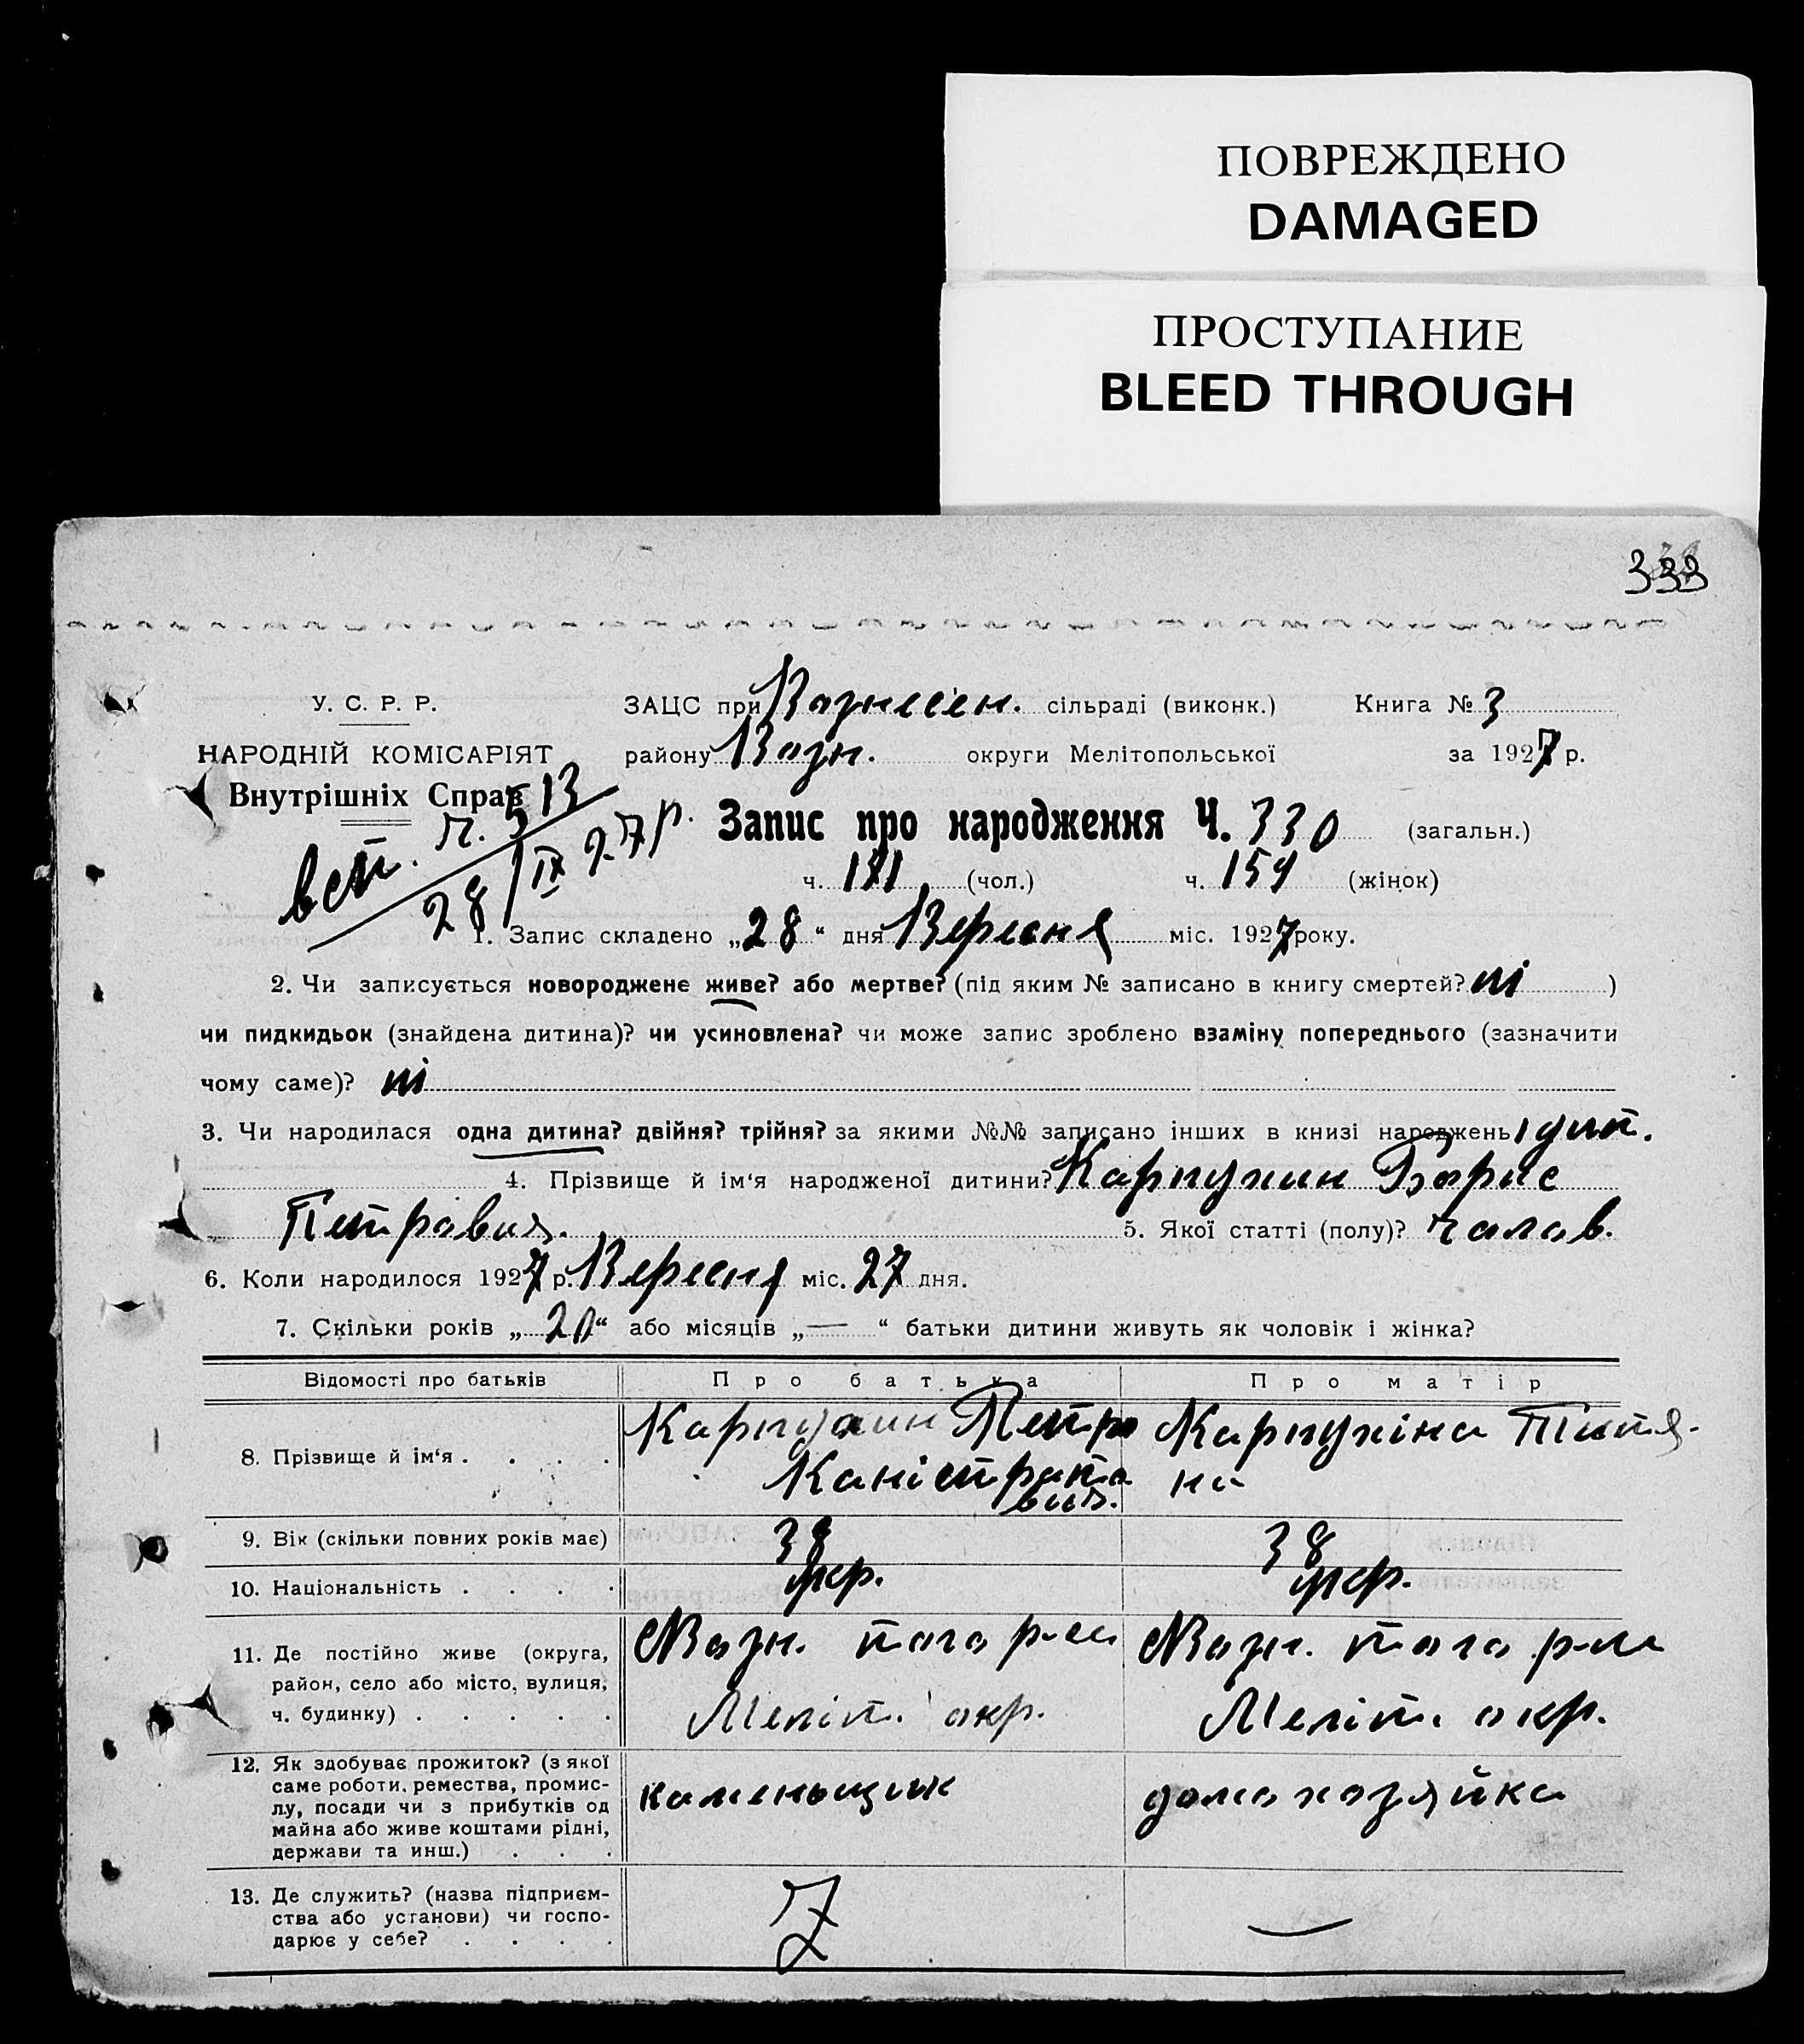 ПОВРЕЖДЕНО
DAMAGED
ПРОСТУПАНИЕ
BLEED THROUGH
333
У. С. Р. Р.
НАРОДНІЙ КОМІСАРІЯТ
Внутрішніх Справ
ЗАЦС при Вознесен. сільраді (виконк.) Книга № 3
району Возн. округи Мелітопольської за 1927 р.
вст. ч. 513
28/IX 27 р.
Запис про народження Ч. 330 (загальн.)
ч. 171 (чол.) ч. 159 (жінок)
1. Запис складено „28“ дня Вересня міс. 1927 року.
2. Чи записується новороджене живе? або мертве? (під яким № записано в книгу смертей? ні )
чи пидкидьок (знайдена дитина)? чи усиновлена? чи може запис зроблено взаміну попереднього (зазначити
чому саме)? ні
3. Чи народилася одна дитина? двійня? трійня? за якими №№ записано інших в книзі народжень 1 дит.
4. Прізвище й ім‘я народженої дитини? Карпухин Борис
Петрович. 5. Якої статті (полу)? чолов.
6. Коли народилося 1927 р. Вересня міс. 27 дня.
7. Скільки років „20“ або місяців „—“ батьки дитини живуть як чоловік і жінка?
Відомості про батьків Про батька Про матір
8. Прізвище й ім‘я . . . . Карпухин Петро Карпухіна Титя-
Каністрато на
вич.
9. Вік (скільки повних років має) 38 38
10. Національність . . . . укр. укр.
11. Де постійно живе (округа, Возн. того р-ну Возн. того р-ну
район, село або місто, вулиця,
ч. будинку) . . . . . Меліт. окр. Меліт. окр.
12. Як здобуває прожиток? (з якої
саме роботи, ремества, промис-
лу, посади чи з прибутків од каменьщик домохозяйка
майна або живе коштами рідні,
держави та инш.) . . .
13. Де служить? (назва підприєм-
ства або установи) чи госпо- —
дарює у себе? . . . .